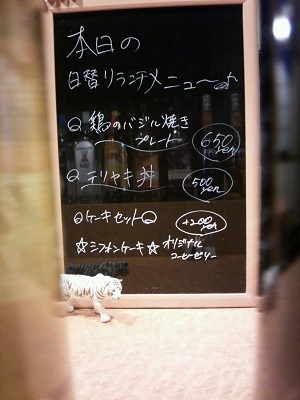 本日の
日替りランチメニュー
鶏のバジル焼き
プレート
650yen
テリヤキ丼
500yen
ケーキセット
+200yen
☆シフォンケーキ☆ オリジナル
コーヒーゼリー